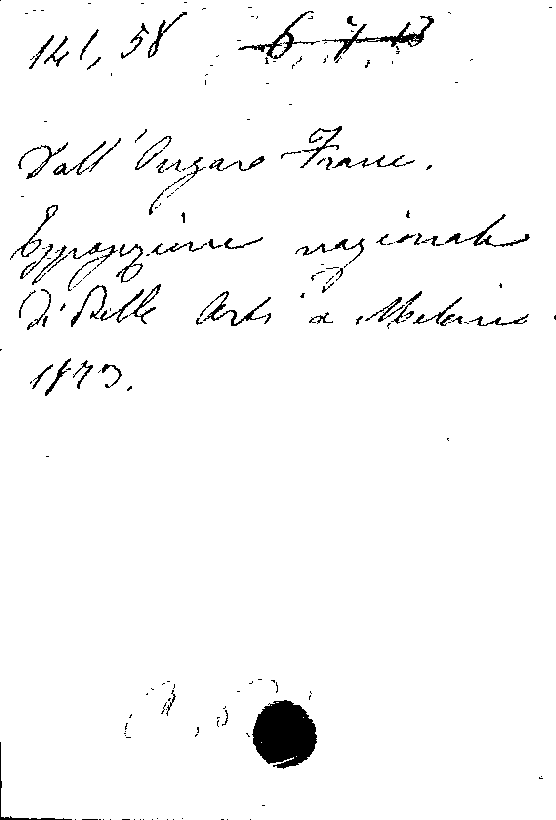 141, 58 6. 7. 13
Dall'Ongaro Franc.
Esposizione nazionale
di Belle Arti a Milano
1873.